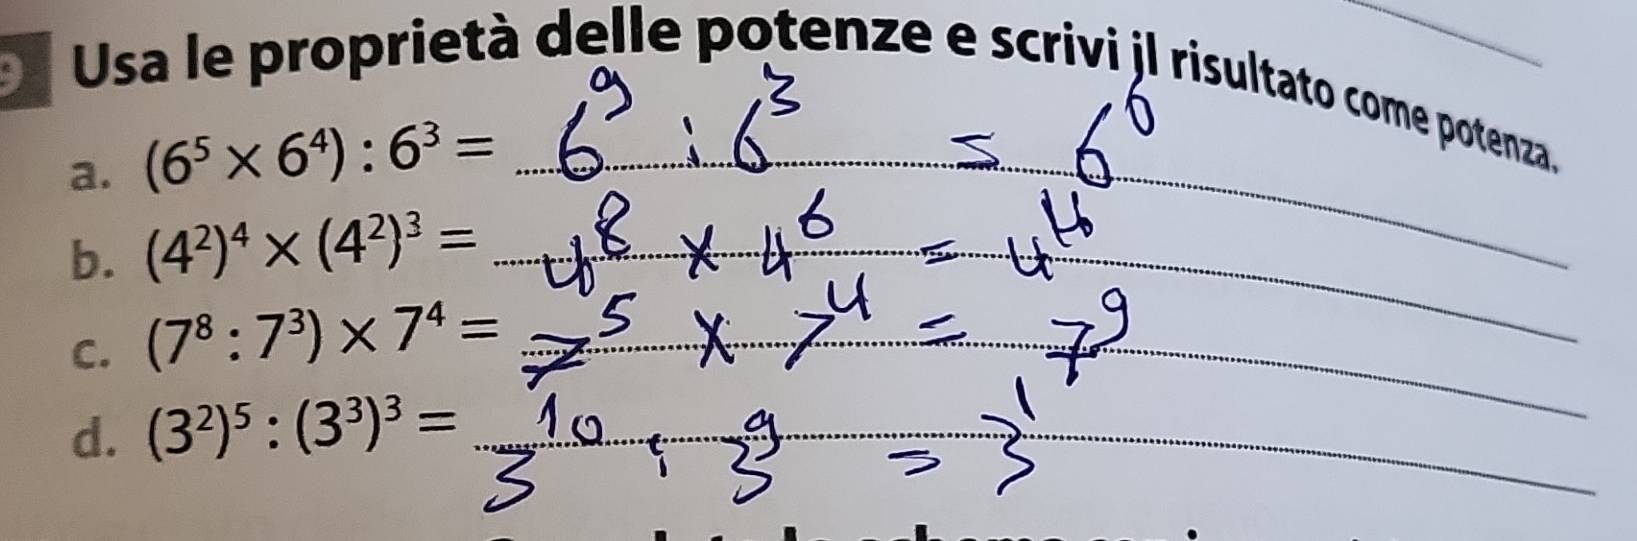 9 Usa le proprietà delle potenze e scrivi il risultato come potenza.
a. (6⁵ × 6⁴) : 6³ = 6⁹ : 6³ = 6⁶
b. (4²)⁴ × (4²)³ = 4⁸ × 4⁶ = 4¹⁴
c. (7⁸ : 7³) × 7⁴ = 7⁵ × 7⁴ = 7⁹
d. (3²)⁵ : (3³)³ = 3¹⁰ : 3⁹ = 3¹